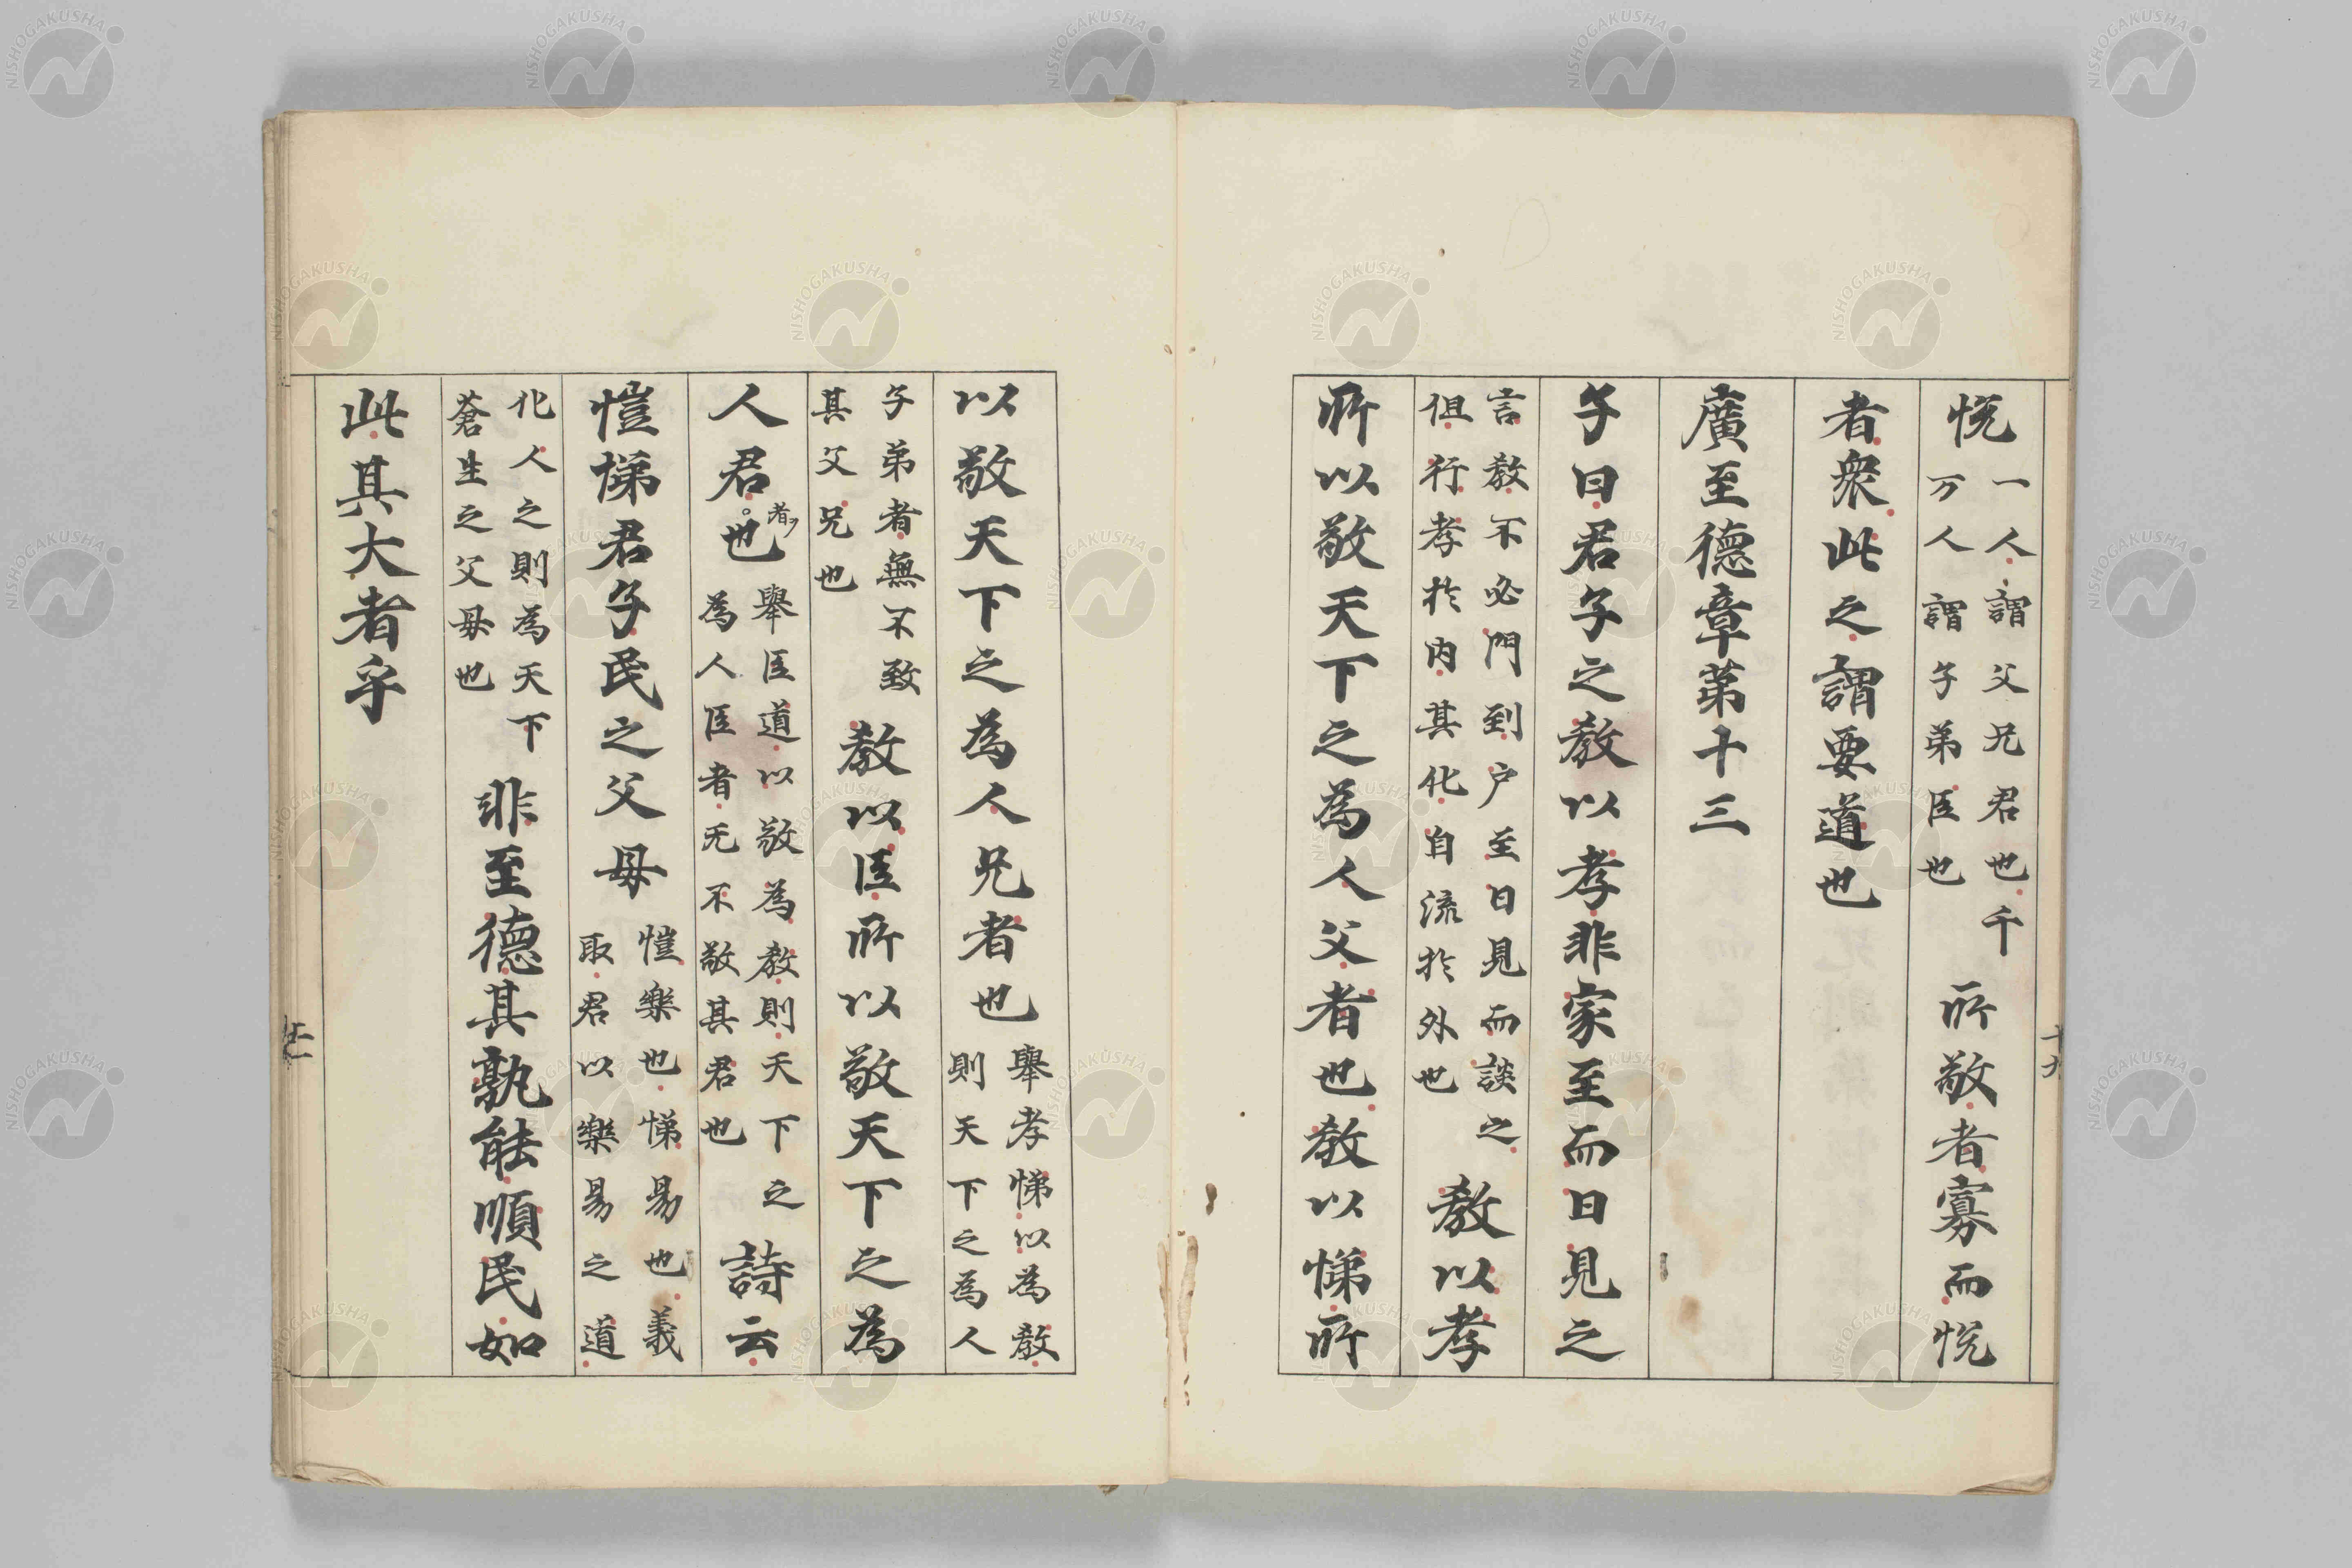 悦一人謂父兄君也千万人謂子弟臣也所敬者寡而悦
者衆此之謂要道也
廣至德章第十三
子曰君子之教以孝非家至而日見之
言教不必門到户至日見而談之但行孝於内其化自流於外也教以孝
所以敬天下之為人父者也教以悌所
以敬天下之為人兄者也舉孝悌以為教則天下之為人
子弟者無不致其父兄也教以臣所以敬天下之為
人君者也舉臣道以敬為教則天下之為人臣者无不敬其君也詩云
愷悌君子民之父母愷樂也悌易也義取君以樂易之道
化人之則為天下蒼生之父母也非至德其孰能順民如
此其大者乎
NISHOGAKUSHA